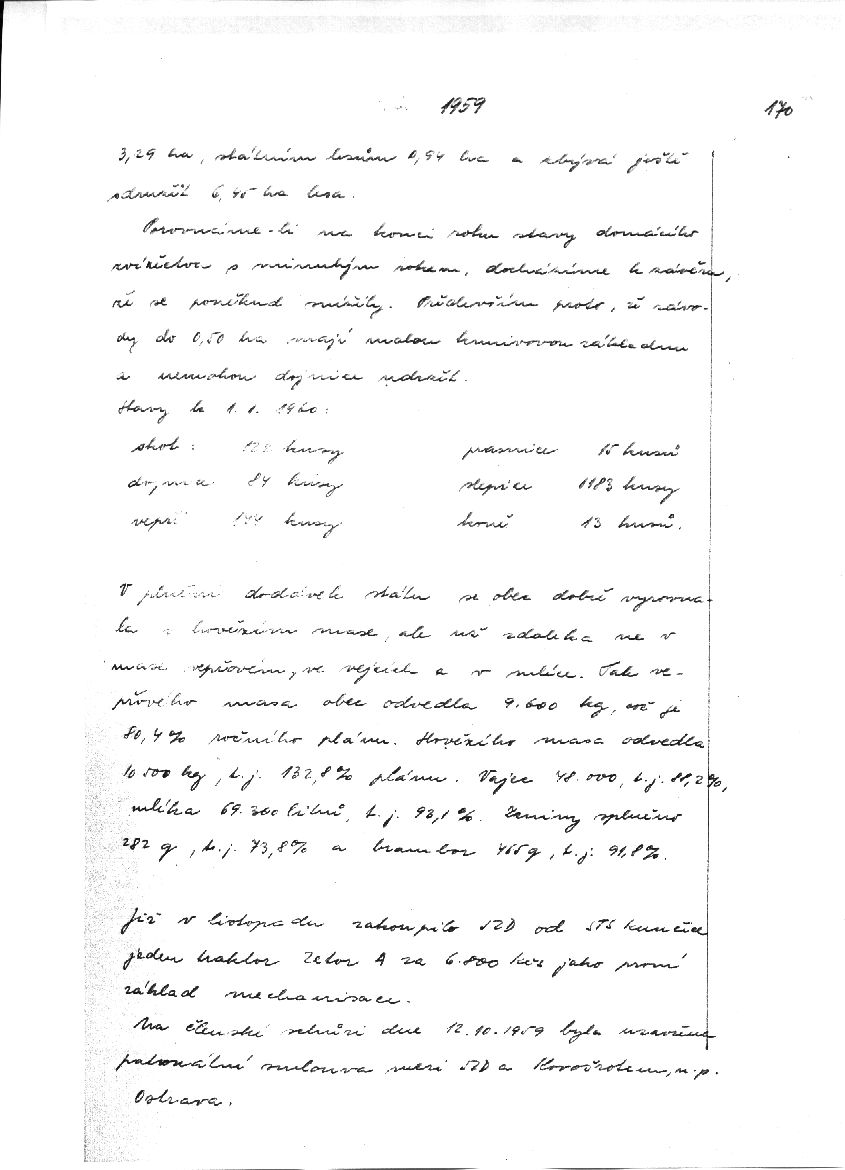 1959 170
3,29 ha, státním lesům 0,94 ha a zbývá ještě
sdružit 6,45 ha lesa.
Porovnáme-li na konci roku stavy domácího
zvířectva s minulým rokem, docházíme k závěru,
že se poněkud snížily. Především proto, že závo-
dy do 0,50 ha mají malou krmivovou základnu
a nemohou dojnice udržet.
Stavy k 1.1. 1960:
skot: kusy prasnice 15 kusů
dojnice 84 kusy slepice 1183 kusy
vepři 144 kusy koně 13 kusů.
V plnění dodávek státu se obec dobře vyrovna-
la v hovězím mase, ale už zdaleka ne v
mase vepřovém, ve vejcích a v mléce. Tak ve-
přového masa obec odvedla 9.600 kg, což je
80,4% ročního plánu. Hovězího masa odvedla
10500 kg, t.j. 132,8% plánu. Vajec 48.000, t.j. 81,2%,
mléka 69.300 litrů, t.j. 93,1%. Zeniny splněno
282 q, t.j. 73,8% a brambor 465 q, t.j. 91,8%.
Již v listopadu zakoupilo JZD od STS Kunčice
jeden traktor Zetor A za 6.800 Kčs jako první
základ mechanisace.
Na členské schůzi dne 12.10.1959 byla uzavřena
patronátní smlouva mezi JZD a Kovošrotem, n.p.
Ostrava.